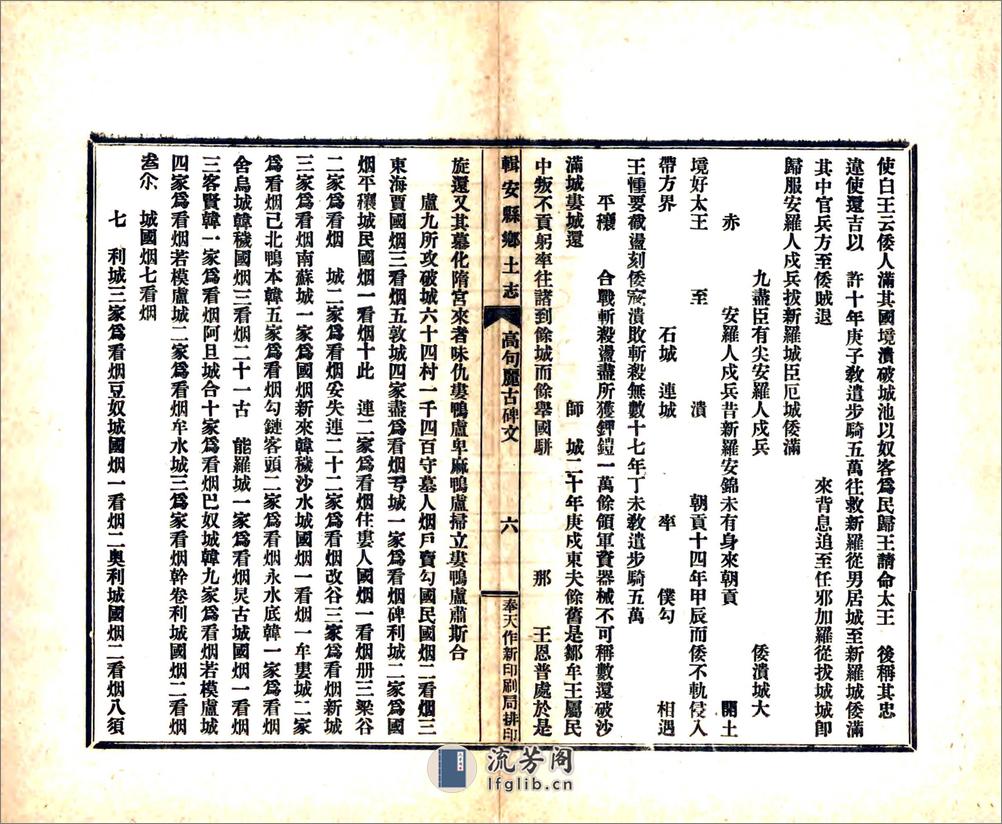 使白王云倭人滿其國境潰破城池以奴客爲民歸王請命太王　後稱其忠
違使還吉以　許十年庚子敎遣步騎五萬往救新羅從男居城至新羅城倭滿
其中官兵方至倭賊退　來背息追至任邪加羅從拔城城卽
歸服安羅人戍兵拔新羅城臣厄城倭滿
九盡臣有尖安羅人戍兵　倭潰城大
赤　安羅人戍兵昔新羅安錦未有身來朝貢　開土
境好太王　至　潰　朝貢十四年甲辰而倭不軌侵入
帶方界　石城　連城　率　僕勾　相遇
王㦜要截盪刻倭寇潰敗斬殺無數十七年丁未敎遣步騎五萬
平穰　合戰斬殺盪盡所獲鉀鎧一萬餘領軍資器械不可稱數還破沙
滿城婁城還　師　城二十年庚戍東夫餘舊是鄒牟王屬民
中叛不貢躬率往諸到餘城而餘舉國騈　那　王恩普處於是
輯安縣鄕土志　高句麗古碑文　六　奉天作新印刷局排印
旋還又其墓化隋宮來者味仇婁鴨盧卑麻鴨盧掃立婁鴨盧肅斯合
盧九所攻破城六十四村一千四百守墓人烟戶賣勾國民國烟二看烟三
東海賈國烟三看烟五敦城四家盡爲看烟亐城一家爲看烟碑利城二家爲國
烟平穰城民國烟一看烟十此　連二家爲看烟住婁人國烟一看烟册三梁谷
二家爲看烟　城二家爲看烟妥失連二十二家爲看烟改谷三家爲看烟新城
三家爲看烟南蘇城一家爲國烟新來韓穢沙水城國烟一看烟一牟婁城二家
爲看烟已北鴨本韓五家爲看烟勾鏈客頭二家爲看烟永水底韓一家爲看烟
舍鳥城韓穢國烟三看烟二十一古　能羅城一家爲看烟炅古城國烟一看烟
三客賢韓一家爲看烟阿旦城合十家爲看烟巴奴城韓九家爲看烟若模盧城
四家爲看烟若模盧城二家爲看烟牟水城三爲家看烟幹卷利城國烟二看烟
城國烟七看烟
七　利城三家爲看烟豆奴城國烟一看烟二奧利城國烟二看烟八須
流芳阁
lfglib.cn